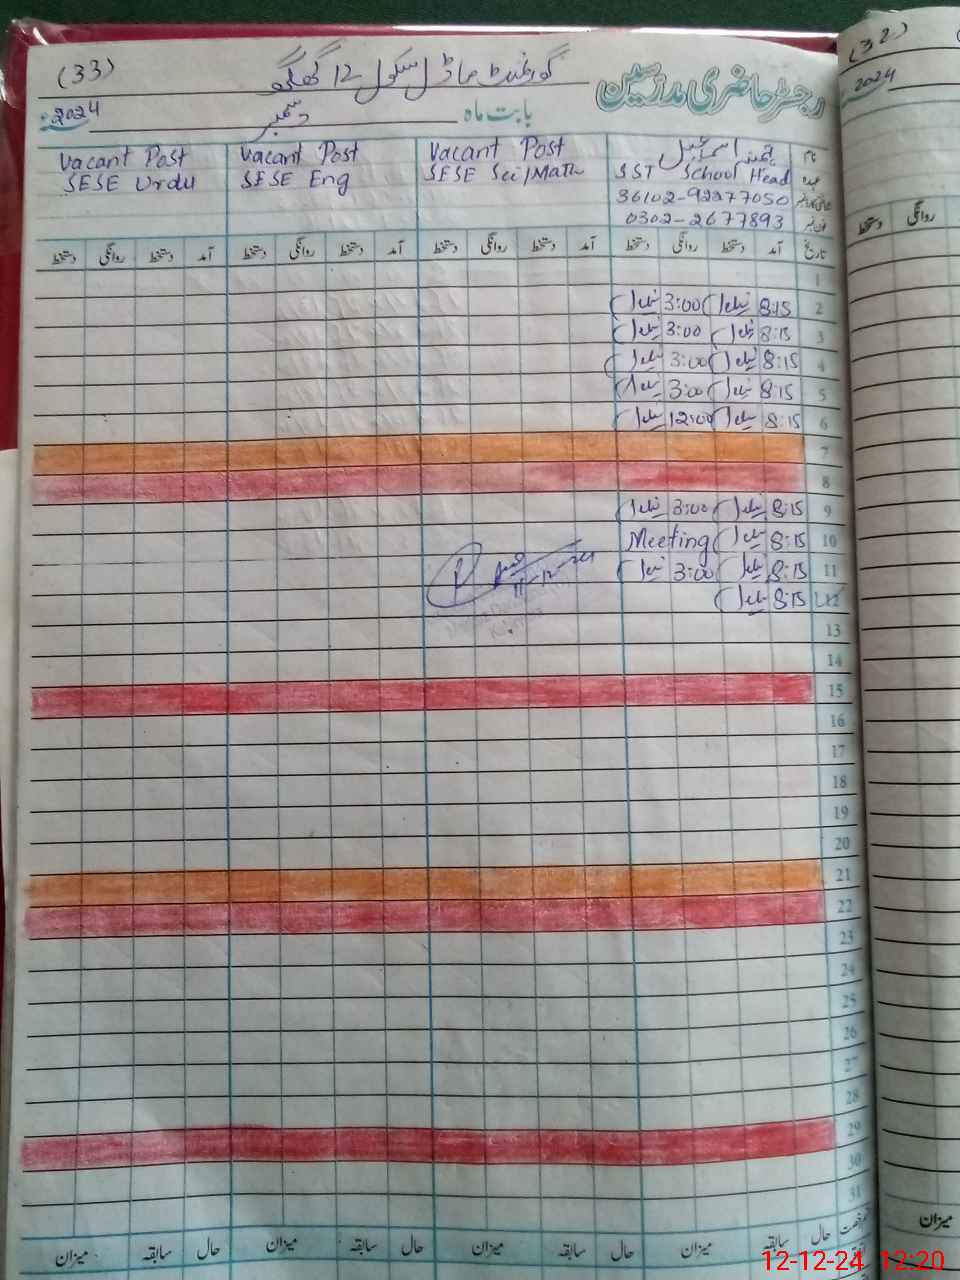 (33) گورنمنٹ ماڈل سکول 12 گھگھ رجسٹر حاضری مدرسین
2024 بابت ماہ دسمبر
(32)
2024
نام
SST School Head
عہدہ
36102-92277050
0302-2677893
فون نمبر
Vacant Post
SESE Sci/Math
Vacant Post
SESE Eng
Vacant Post
SESE Urdu
تاریخ آمد دستخط روانگی دستخط آمد دستخط روانگی دستخط آمد دستخط روانگی دستخط آمد دستخط روانگی دستخط
روانگی دستخط
1
2 8:15 3:00
3 8:15 3:00
4 8:15 3:00
5 8:15 3:00
6 8:15 12:00
7
8
9 8:15 3:00
10 8:15 Meeting
11 8:15 3:00
12 8:15
11-12-24
13
14
15
16
17
18
19
20
21
22
23
24
25
26
27
28
29
30
31
حال سابقہ میزان حال سابقہ میزان حال سابقہ میزان حال سابقہ میزان
میزان
12-12-24 12:20